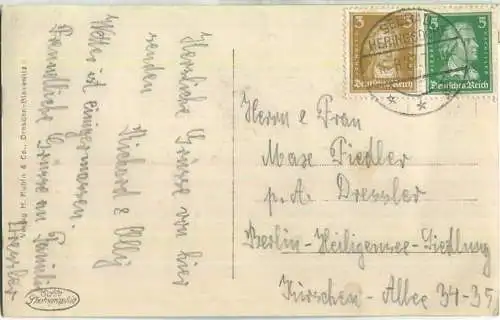 Herzliche Grüsse von hier
senden
Richard & Olly
Wetter ist einigermassen.
Freundliche Grüsse an Familie
Dressler
Verlag H. Rubin & Co., Dresden-Blasewitz
Echte
Photographie
3 3
Deutsches Reich
5 5
Deutsches Reich
SEEBAD
HERINGSDORF
Herrn & Frau
Max Fiedler
p. A. Dressler
Berlin-Heiligensee-Siedlung
Kürschen-Allee 34-35